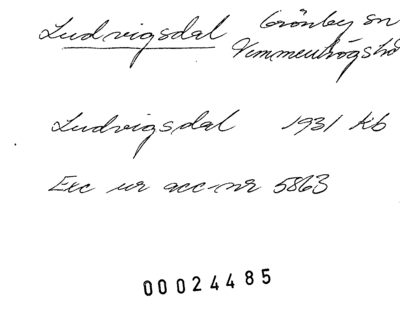 Ludvigsdal Grönby sn
Vemmenhögs hd
Ludvigsdal 1931 Kb
Exc ur acc-nr 5863
00024485